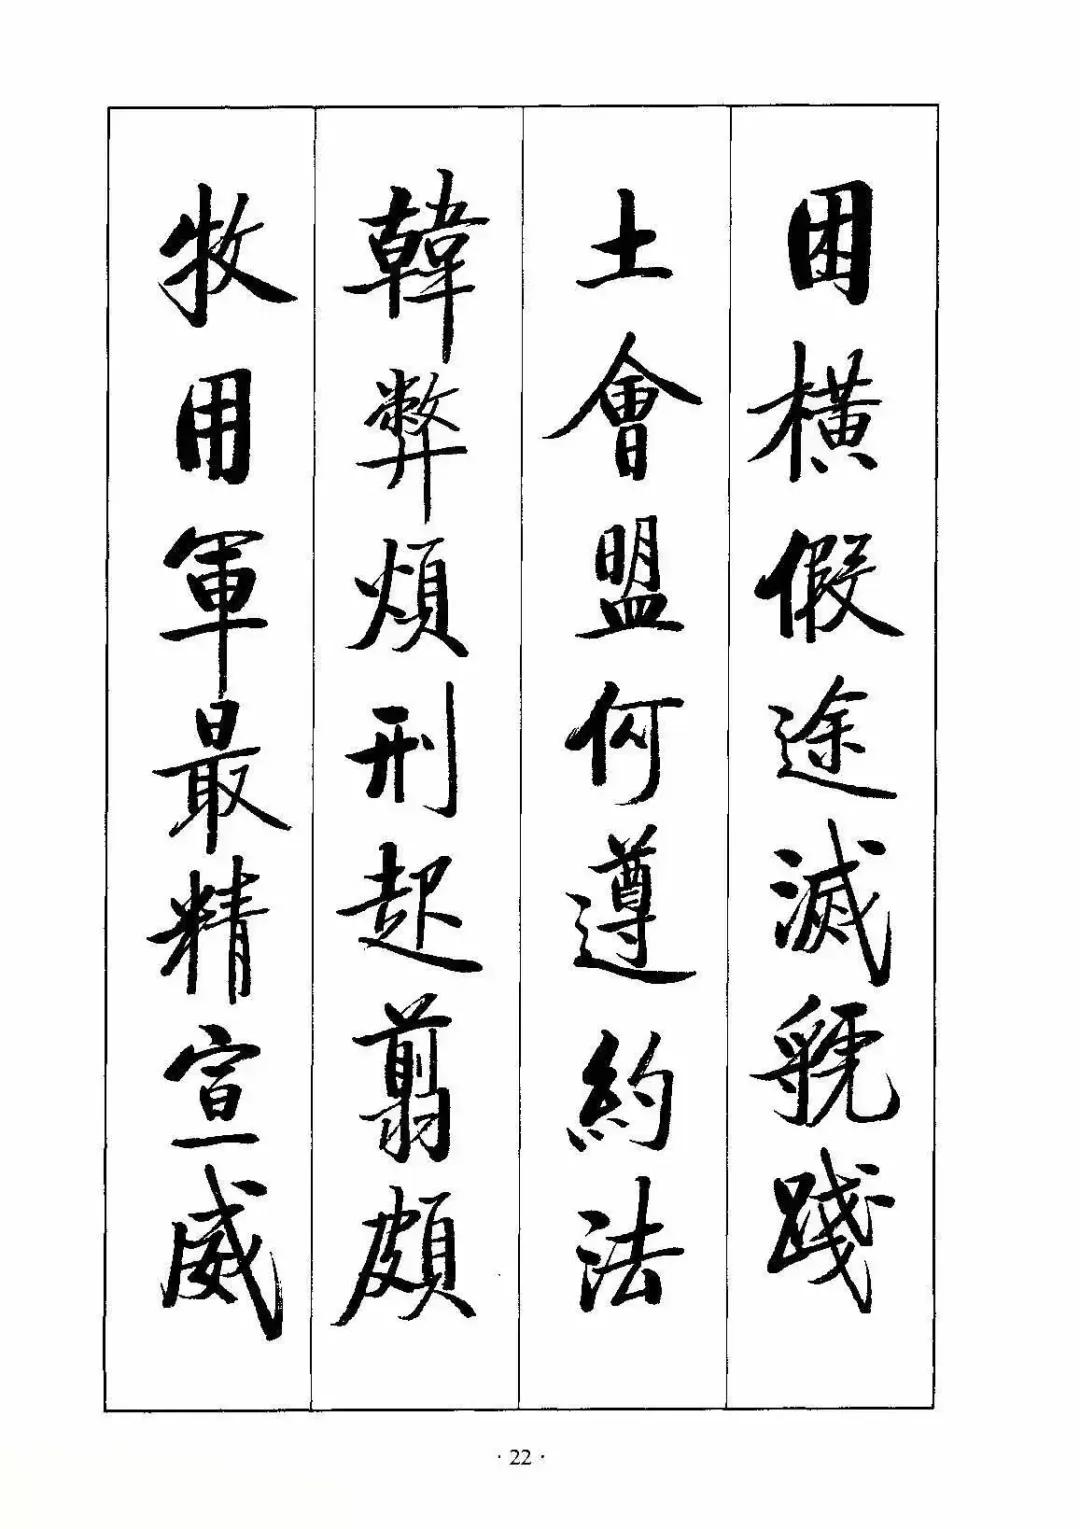 困橫假途滅虢踐
土會盟何遵約法
韓弊煩刑起翦頗
牧用軍最精宣威
·22·